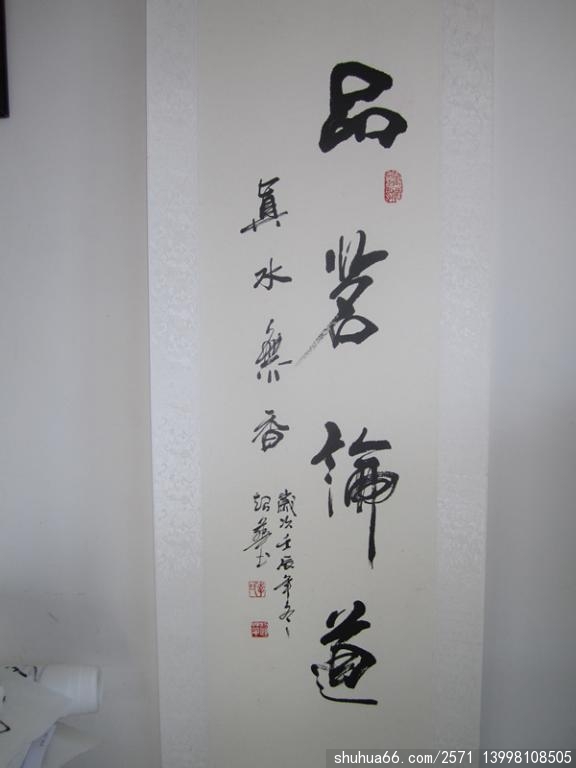 品茗論道
真水無香
歲次壬辰年冬
shuhua66.com/2571 13998108505